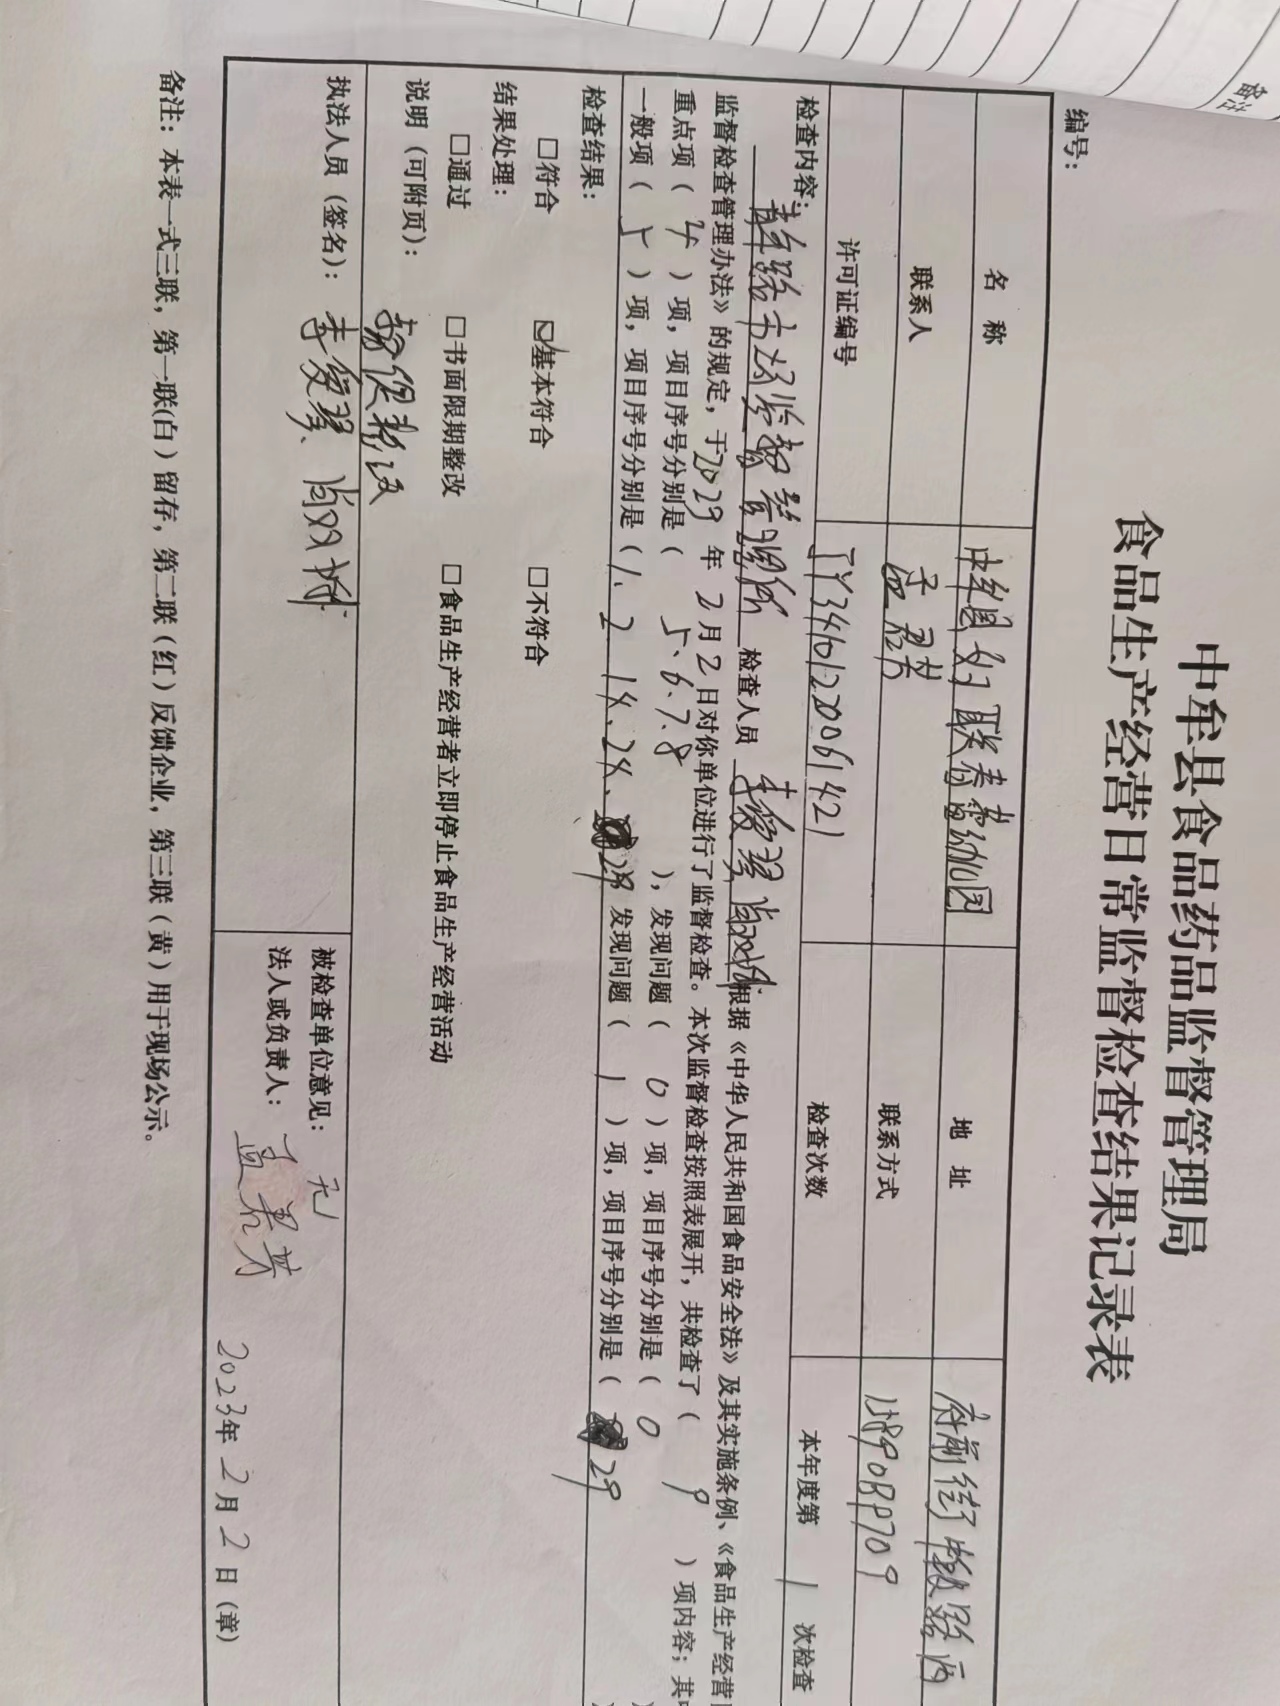 中牟县食品药品监督管理局
食品生产经营日常监督检查结果记录表
编号：
名 称 中牟县 联 幼儿园 地 址 府前街 路西
联系人 孟君芳 联系方式
许可证编号 JY34101220061421 检查次数 本年度第 1 次检查
检查内容：
路市场监督管理所 检查人员 根据《中华人民共和国食品安全法》及其实施条例、《食品生产经营
监督检查管理办法》的规定，于2023年 2月2日对你单位进行了监督检查。本次监督检查按照表展开，共检查了（ 9 ）项内容；其
重点项（ 4 ）项，项目序号分别是（ 5、6、7、8 ），发现问题（ 0 ）项，项目序号分别是（ 0
一般项（ 5 ）项，项目序号分别是（1、2 14、24、29 发现问题（ 1 ）项，项目序号分别是（ 29
检查结果：
□符合 ☑基本符合 □不符合
结果处理：
□通过 □书面限期整改 □食品生产经营者立即停止食品生产经营活动
说明（可附页）：
执法人员（签名）： 被检查单位意见： 无
法人或负责人： 孟君芳
2023年 2月 2日（章）
备注：本表一式三联，第一联(白）留存，第二联（红）反馈企业，第三联（黄）用于现场公示。